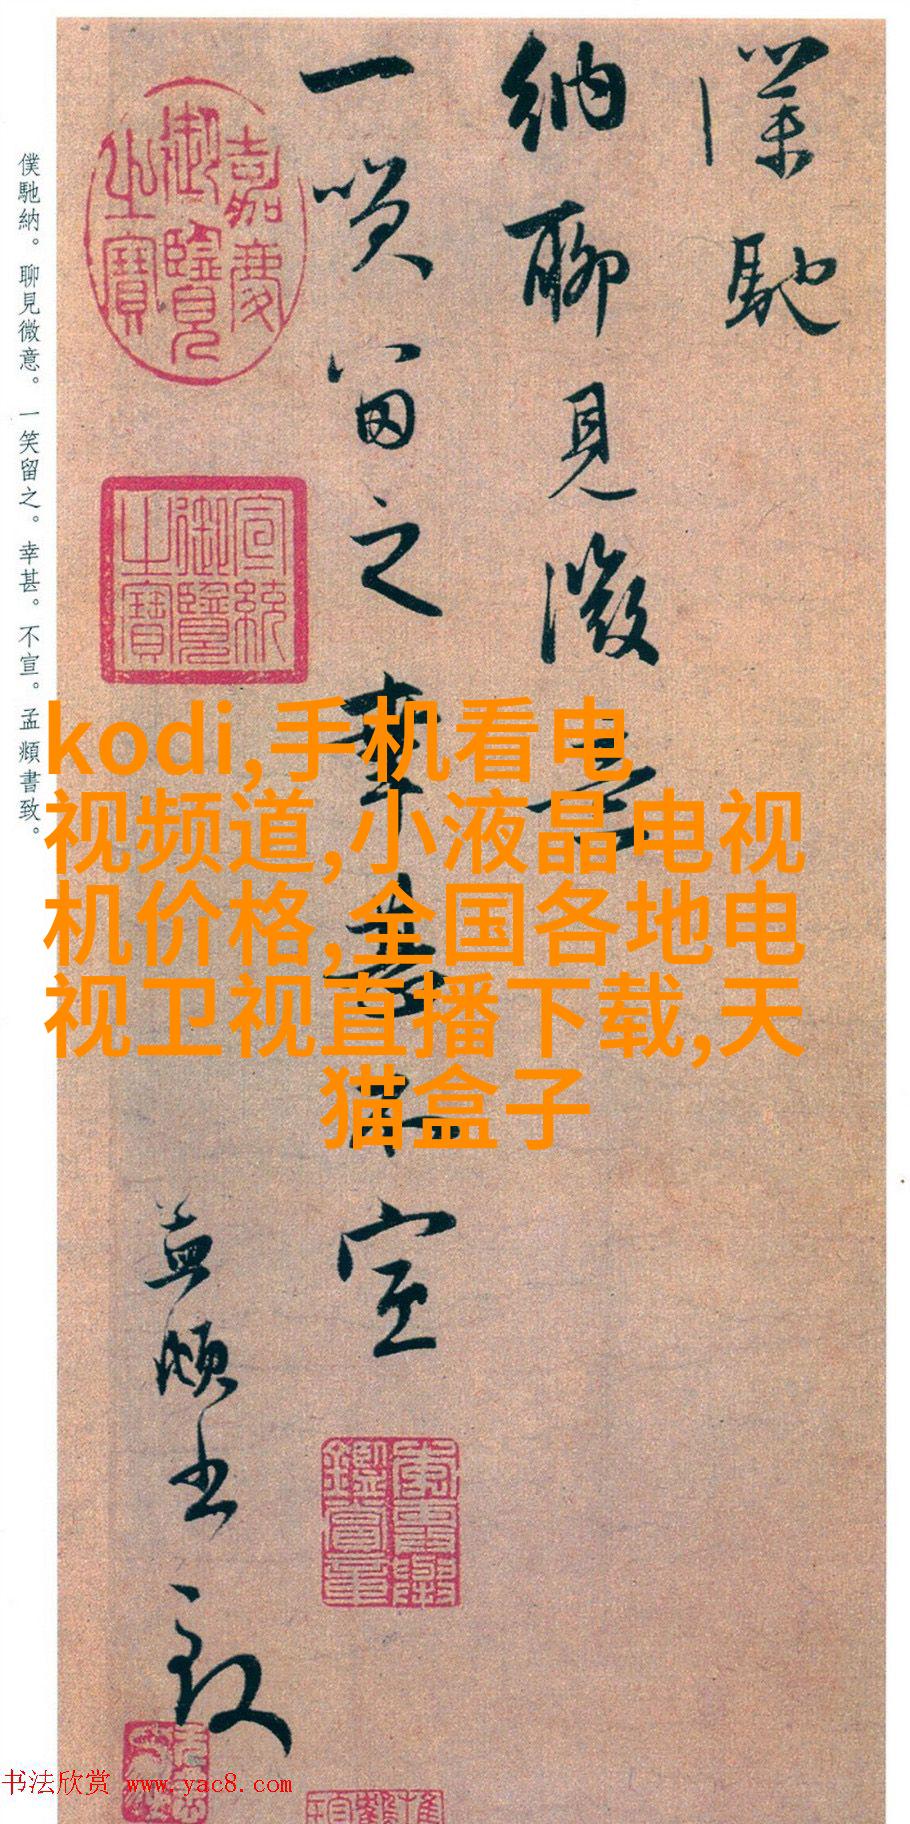 僕馳
納聊見微意
一笑留之幸甚不宣
孟頫書致
嘉慶御覽之寶
宣統御覽之寶
僕馳納。聊見微意。一笑留之。幸甚。不宣。孟頫書致。
kodi,手机看电
视频道,小液晶电视
机价格,全国各地电
视卫视直播下载,天
猫盒子
书法欣赏 www.yac8.com